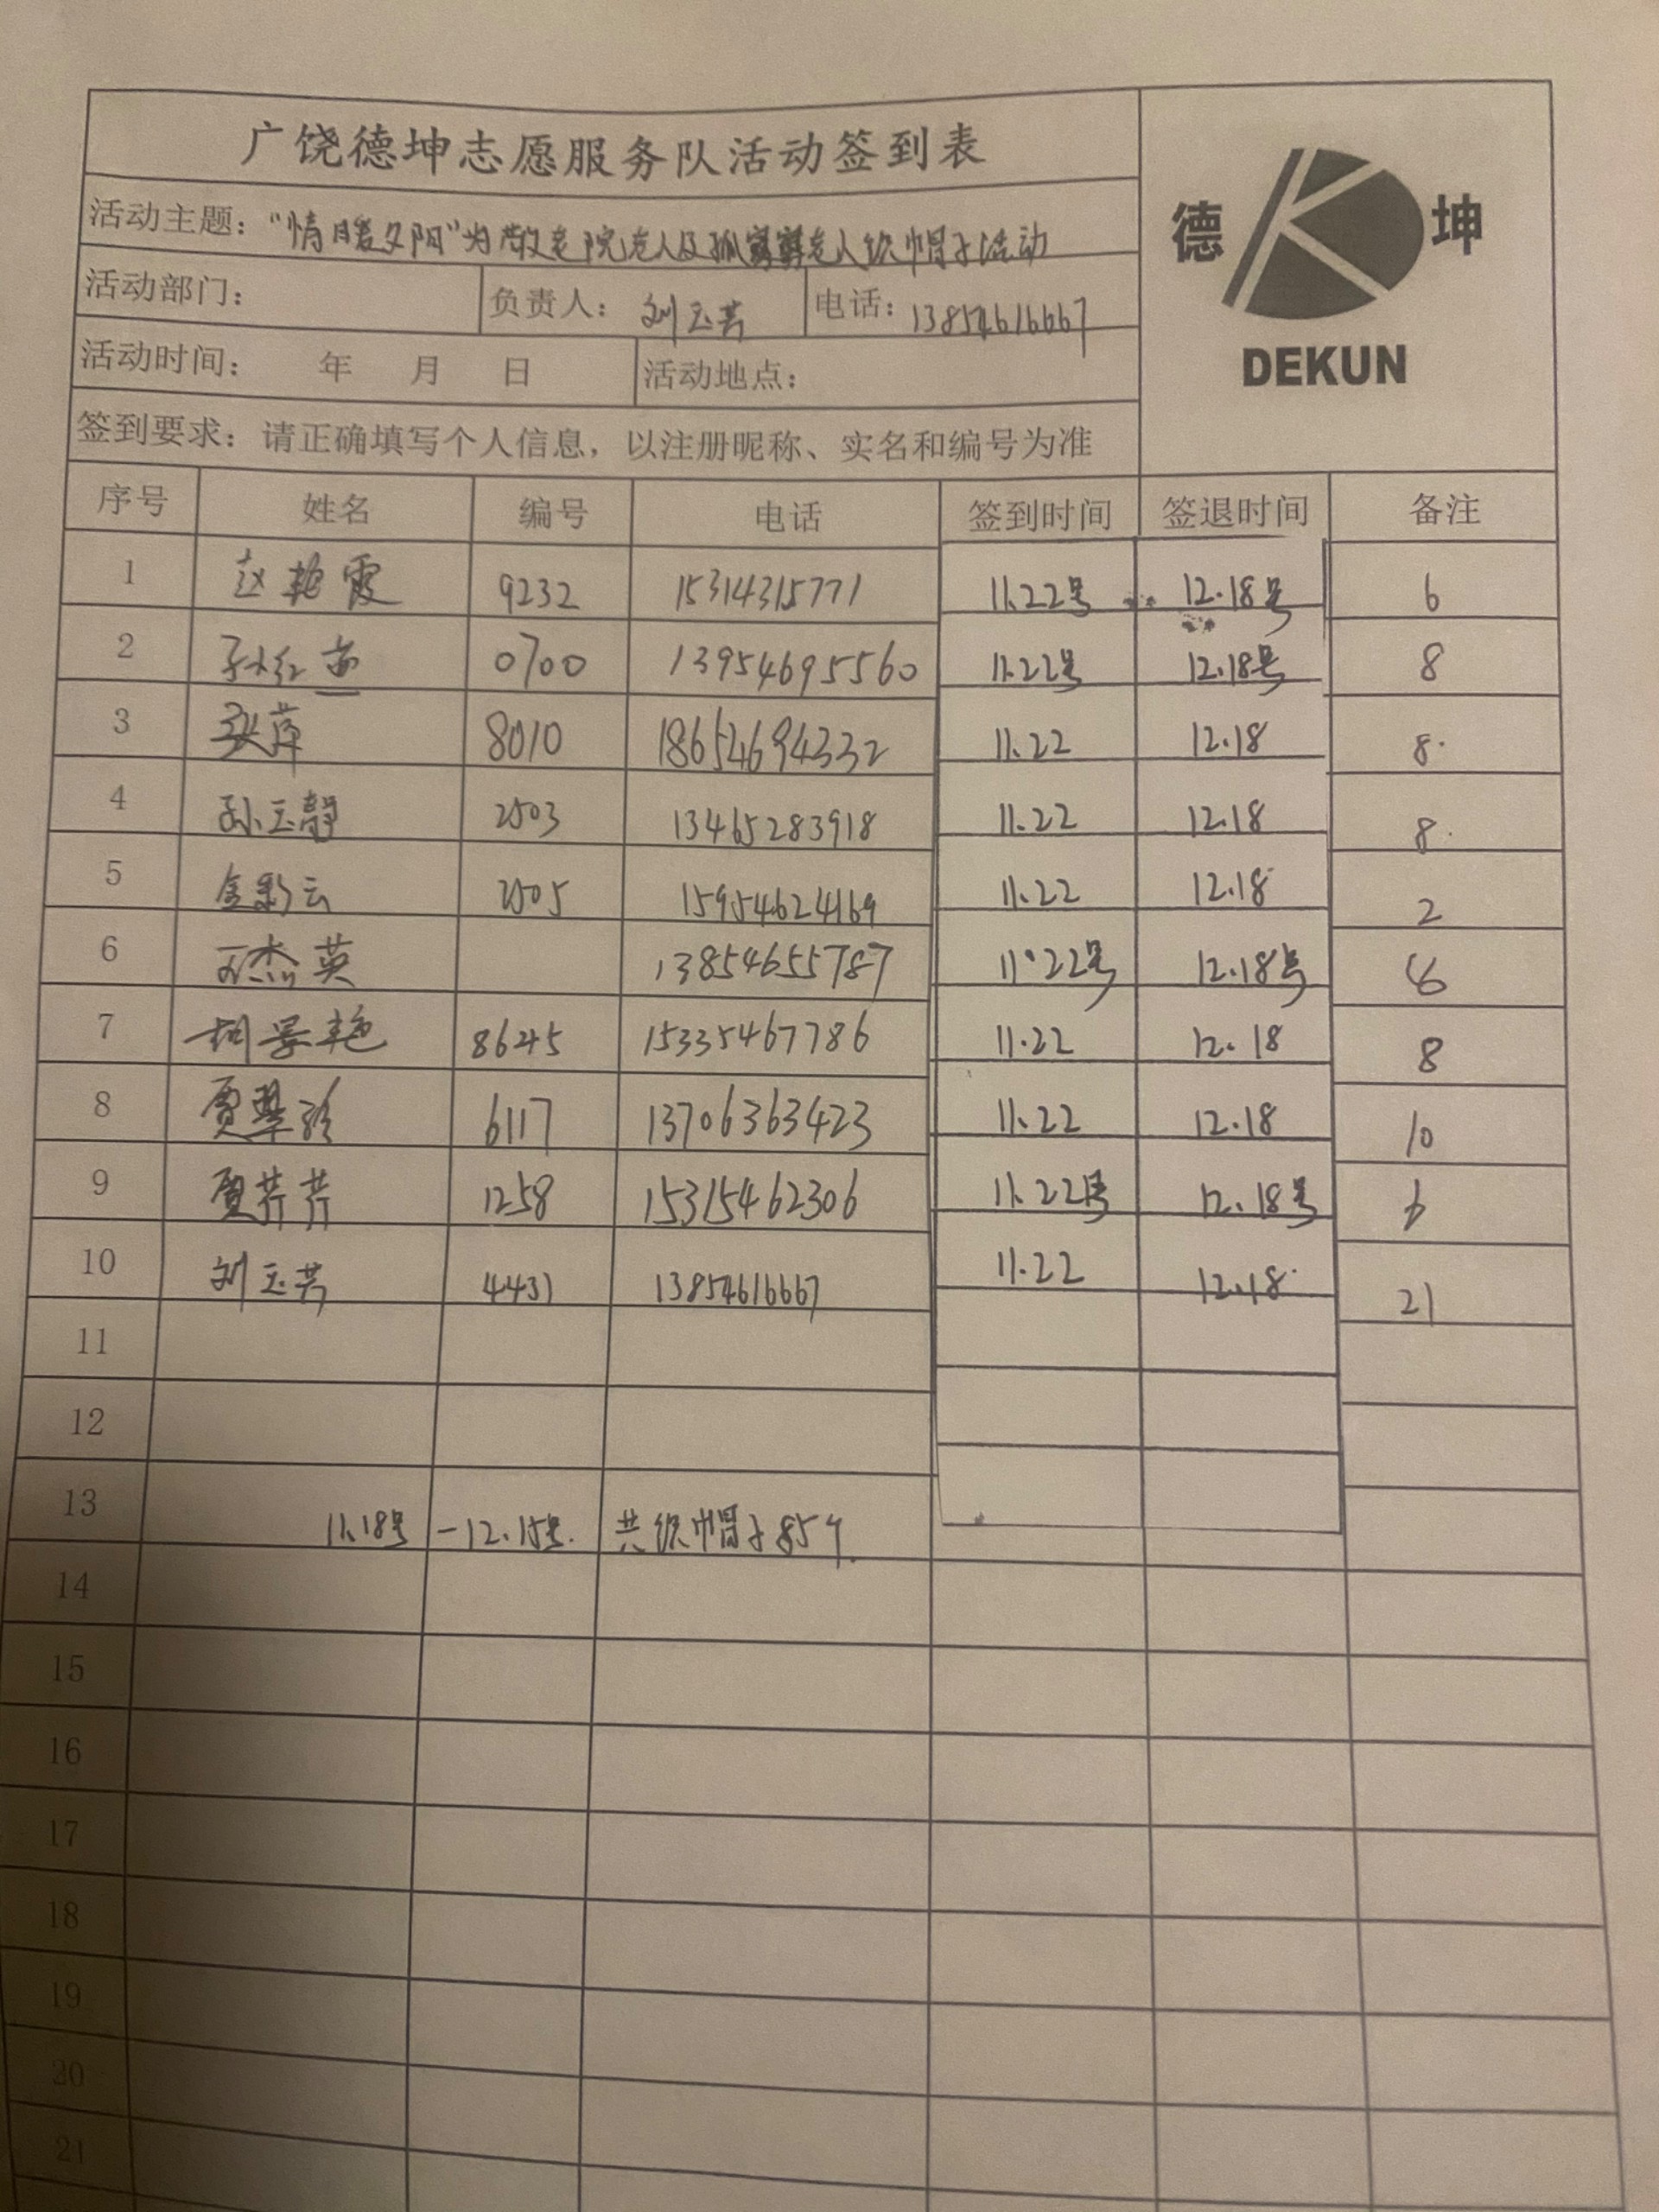 广饶德坤志愿服务队活动签到表
德 坤
DEKUN
活动主题："情暖夕阳"为敬老院老人及孤寡老人织帽子活动
活动部门： 负责人：刘玉芳 电话：13854616667
活动时间： 年 月 日 活动地点：
签到要求：请正确填写个人信息，以注册昵称、实名和编号为准
序号 姓名 编号 电话 签到时间 签退时间 备注
1 赵艳霞 9232 15314315771 11.22号 12.18号 6
2 孙红苗 0700 13954695560 11.22号 12.18号 8
3 8010 18654694332 11.22 12.18 8
4 孙玉静 2503 13465283918 11.22 12.18 8
5 金彩云 2505 15954624169 11.22 12.18 2
6 杰英 13854655787 11.22号 12.18号
7 胡景艳 8645 15335467786 11.22 12.18 8
8 贾翠珍 6117 13706363423 11.22 12.18 10
9 贾芹芹 1258 15315462306 11.22号 12.18号 6
10 刘玉芳 4431 13854616667 11.22 12.18 21
11
12
13 11.18号-12.15号. 共织帽子85个.
14
15
16
17
18
19
20
21